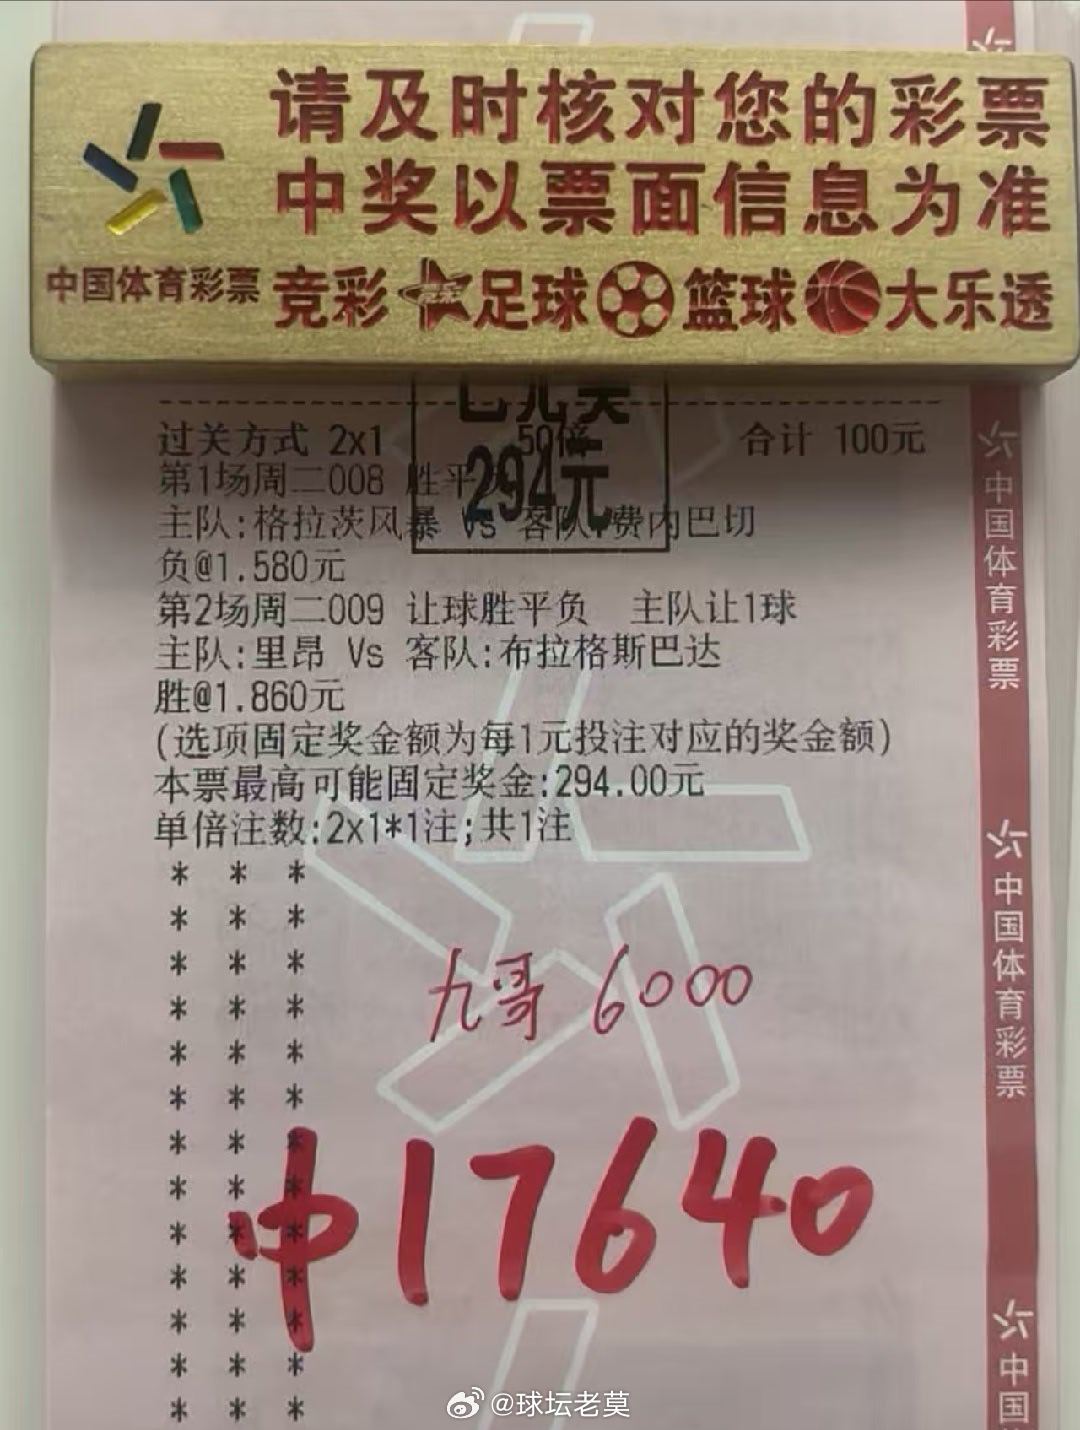 请及时核对您的彩票
中奖以票面信息为准
中国体育彩票 竞彩 足球 篮球 大乐透
已兑奖
294元
过关方式 2x1 50倍 合计 100元
第1场周二008 胜平
主队:格拉茨风暴 Vs 客队:费内巴切
负@1.580元
第2场周二009 让球胜平负 主队让1球
主队:里昂 Vs 客队:布拉格斯巴达
胜@1.860元
(选项固定奖金额为每1元投注对应的奖金额)
本票最高可能固定奖金:294.00元
单倍注数:2x1*1注;共1注
* * *
* * *
* * *
* * *
* * *
* * *
* * *
* * *
* * *
* * *
* * *
* * *
* * *
九哥 6000
中17640
中国体育彩票
中国体育彩票
中国
@球坛老莫